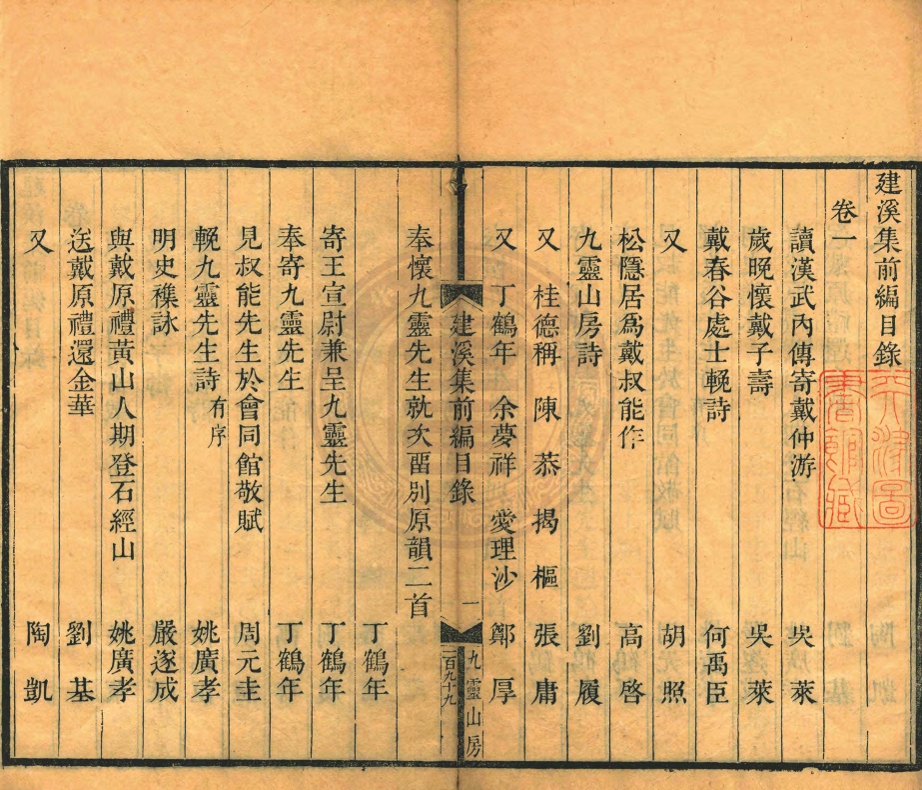 建溪集前編目錄
卷一
讀漢武內傳寄戴仲游 吳萊
歲晚懷戴子壽 吳萊
戴春谷處士輓詩 何禹臣
又 胡照
松隱居爲戴叔能作 高啓
九靈山房詩 劉履
又 桂德稱 陳㳟 揭樞 張庸
又 丁鶴年 余夢祥 愛理沙 鄭厚
建溪集前編目錄 一 二百九十九 九靈山房
奉懷九靈先生就次畱別原韻二首
丁鶴年
寄王宣尉兼呈九靈先生 丁鶴年
奉寄九靈先生 丁鶴年
見叔能先生於會同館敬賦 周元圭
輓九靈先生詩有序 姚廣孝
明史襍詠 嚴遂成
與戴原禮黃山人期登石經山 姚廣孝
送戴原禮還金華 劉基
又 陶凱